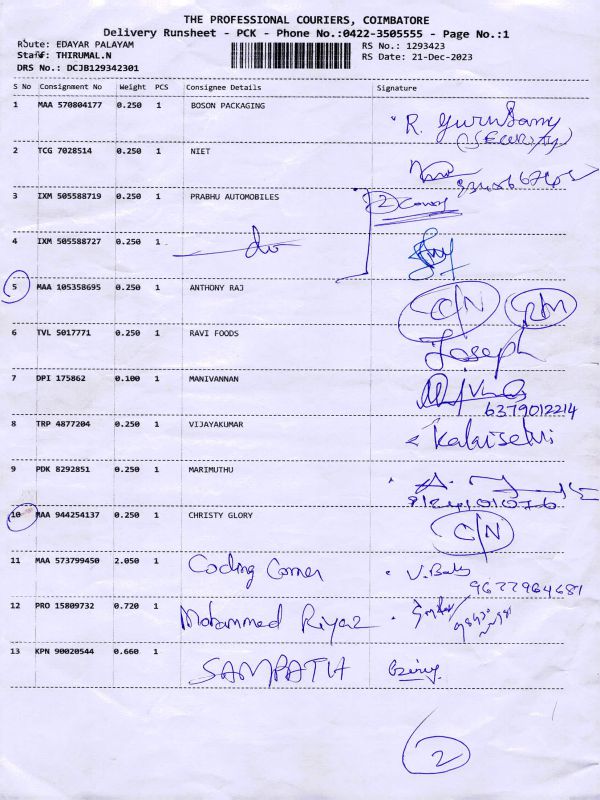 THE PROFESSIONAL COURIERS, COIMBATORE
Delivery Runsheet - PCK - Phone No.:0422-3505555 - Page No.:1
Route: EDAYAR PALAYAM
RS No.: 1293423
Staff: THIRUMAL.N
RS Date: 21-Dec-2023
DRS No.: DCJB129342301
S No Consignment No Weight PCS Consignee Details Signature
1 MAA 570804177 0.250 1 BOSON PACKAGING R. Gurusamy
(SECURITY)
2 TCG 7028514 0.250 1 NIET
3 IXM 505588719 0.250 1 PRABHU AUTOMOBILES 2
4 IXM 505588727 0.250 1 do
5 MAA 105358695 0.250 1 ANTHONY RAJ C/N RM
6 TVL 5017771 0.250 1 RAVI FOODS Joseph
7 DPI 175862 0.100 1 MANIVANNAN
6379012214
8 TRP 4877204 0.250 1 VIJAYAKUMAR Kalaiselvi
9 PDK 8292851 0.250 1 MARIMUTHU A.
10 MAA 944254137 0.250 1 CHRISTY GLORY C/N
11 MAA 573799450 2.050 1 Coding Corner V. Bala
9677964681
12 PRO 15809732 0.720 1 Mohammed Riyaz
13 KPN 90020544 0.660 1 SAMPATH
2